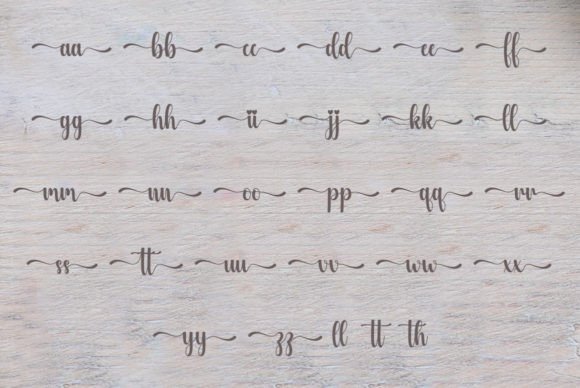 aa bb cc dd ee ff
gg hh ii jj kk ll
mm nn oo pp qq rr
ss tt uu vv ww xx
yy zz ll tt th